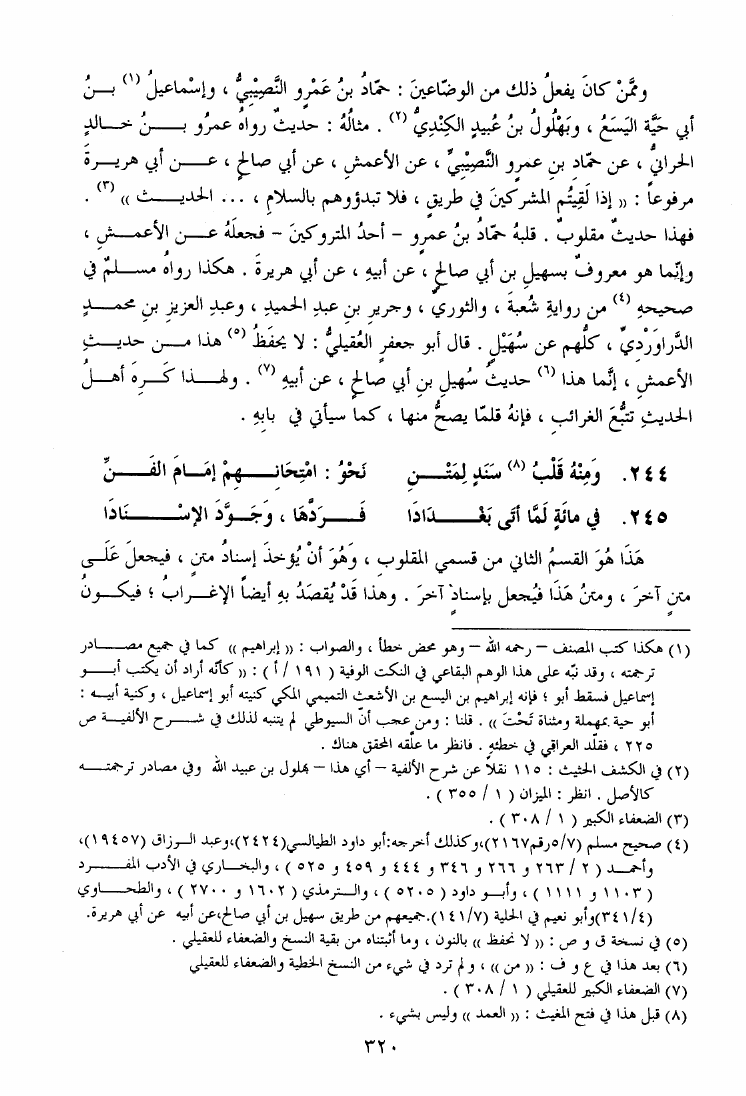 وممَّنْ كانَ يفعلُ ذلك من الوضّاعينَ : حمّادُ بنُ عَمْرٍو النَّصِيْبِيُّ ، وإسْماعيلُ (١) بــنُ
أبي حَيَّة اليَسَعُ ، وبَهْلُولُ بنُ عُبيدٍ الكِنْدِيُّ (٢) . مثالُهُ : حديثٌ رواهُ عمرُو بــنُ خــالدٍ
الحرانيُّ ، عن حمّادِ بنِ عمرٍو النَّصِيْبيِّ ، عن الأعمشِ ، عن أبي صالحٍ ، عــن أبي هريرةَ
مرفوعاً : (( إذا لَقِيتُم المشركينَ في طريقٍ ، فلا تبدؤوهم بالسلامِ ، ... الحديــث )) (٣) .
فهذا حديثٌ مقلوبٌ . قلبهُ حمّادُ بنُ عمرٍو – أحدُ المتروكينَ – فجعلَهُ عــن الأعمــشِ ،
وإنّما هو معروفٌ بسهيلِ بنِ أبي صالحٍ ، عن أبيهِ ، عن أبي هريرةَ . هكذا رواهُ مســلمٌ في
صحيحهِ (٤) من روايةِ شُعبةَ ، والثوريِّ ، وجريرِ بنِ عبدِ الحميدِ ، وعبدِ العزيزِ بنِ محمــدٍ
الدَّرَاوَرْديِّ ، كلُّهم عن سُهَيْلٍ . قال أبو جعفرٍ العُقيليُّ : لا يحْفَظُ (٥) هذا مــن حديــثِ
الأعمشِ ، إنَّما هذا (٦) حديثُ سُهيلِ بنِ أبي صالحٍ ، عن أبيهِ (٧) . ولهــذا كَــرِهَ أهــلُ
الحديثِ تتبُّعَ الغرائبِ ، فإنهُ قلمّا يصحُّ منها ، كما سيأتي في بابِهِ .
٢٤٤. وَمِنْهُ قَلْبُ (٨) سَنَدٍ لِمَتْــنِ نَحْوُ : امْتِحَانِــهِمْ إمَــامَ الفَــنِّ
٢٤٥. في مائَةٍ لَمَّا أتَى بَغْــدَادَا فَــرَدَّهَا ، وَجَــوَّدَ الإسْــنَادَا
هَذَا هُوَ القسمُ الثاني من قسمي المقلوبِ ، وَهُوَ أنْ يُؤخذَ إسنادُ متنٍ ، فيجعلَ عَلَــى
متنٍ آخرَ ، ومتنُ هَذَا فيُجعل بإسنادٍ آخرَ . وهذا قَدْ يُقصَدُ بهِ أيضاً الإغــرابُ ؛ فيكــونُ
(١) هكذا كتب المصنف – رحمه الله – وهو محض خطأ ، والصواب : (( إبراهيم )) كما في جميع مصــادر
ترجمته ، وقد نبّه على هذا الوهم البقاعي في النكت الوفية ( ١٩١ / أ ) : (( كأنّه أراد أن يكتب أبــو
إسماعيل فسقط أبو ؛ فإنه إبراهيم بن اليسع بن الأشعث التميمي المكي كنيته أبو إسماعيل ، وكنية أبيــه :
أبو حية بمهملة ومثناة تَحْتُ )) . قلنا : ومن عجب أنّ السيوطي لم يتنبه لذلك في شــرح الألفيــة ص
٢٢٥ ، فقلّد العراقي في خطئِهِ . فانظر ما علّقه المحقق هناك .
(٢) في الكشف الحثيث : ١١٥ نقلاً عن شرح الألفية – أي هذا – بهلول بن عبيد الله وفي مصادر ترجمتــه
كالأصل . انظر : الميزان ( ١ / ٣٥٥ ) .
(٣) الضعفاء الكبير ( ١ / ٣٠٨ ) .
(٤) صحيح مسلم (٥/٧رقم٢١٦٧)،وكذلك أخرجه:أبو داود الطيالسي(٢٤٢٤)،وعبد الــرزاق (١٩٤٥٧)،
وأحمــد ( ٢ / ٢٦٣ و ٢٦٦ و ٣٤٦ و ٤٤٤ و ٤٥٩ و ٥٢٥ ) ، والبخــاري في الأدب المفــرد
( ١١٠٣ و ١١١١ ) ، وأبــو داود ( ٥٢٠٥ ) ، والــترمذي ( ١٦٠٢ و ٢٧٠٠ ) ، والطحــاوي
(٣٤١/٤)وأبو نعيم في الحلية (١٤١/٧).جميعهم من طريق سهيل بن أبي صالح،عن أبيه عن أبي هريرة.
(٥) في نسخة ق و ص : (( لا نحفظ )) بالنون ، وما أثبتناه من بقية النسخ والضعفاء للعقيلي .
(٦) بعد هذا في ع و ف : (( من )) ، ولم ترد في شيء من النسخ الخطية والضعفاء للعقيلي
(٧) الضعفاء الكبير للعقيلي ( ١ / ٣٠٨ ) .
(٨) قبل هذا في فتح المغيث : (( العمد )) وليس بشيء .
٣٢٠